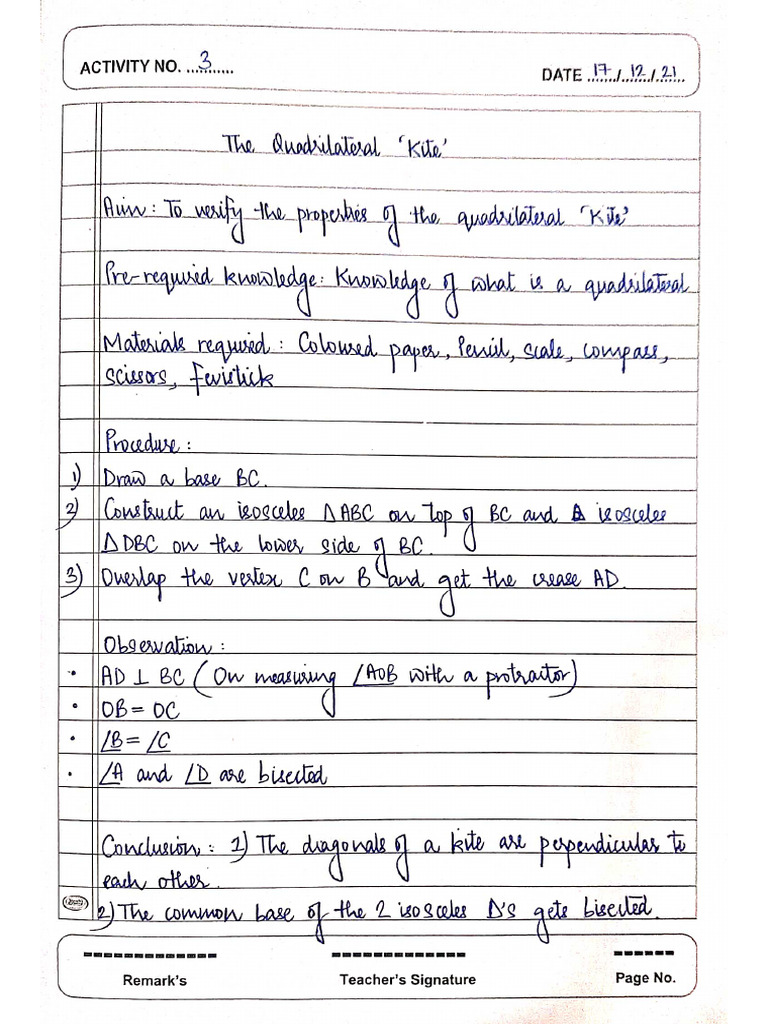 ACTIVITY NO. ...3........
DATE 17/12/21
The Quadrilateral 'Kite'
Aim: To verify the properties of the quadrilateral 'Kite'
Pre-required knowledge: Knowledge of what is a quadrilateral
Materials required: Coloured paper, Pencil, scale, compass,
scissors, Fevistick
Procedure:
1) Draw a base BC.
2) Construct an isosceles ΔABC on top of BC and isosceles
ΔDBC on the lower side of BC.
3) Overlap the vertex C on B and get the crease AD.
Observation:
• AD ⊥ BC (On measuring ∠AOB with a protractor)
• OB = OC
• ∠B = ∠C
• ∠A and ∠D are bisected
Conclusion: 1) The diagonals of a kite are perpendicular to
each other.
2) The common base of the 2 isosceles Δ's gets bisected.
Remark's
Teacher's Signature
Page No.